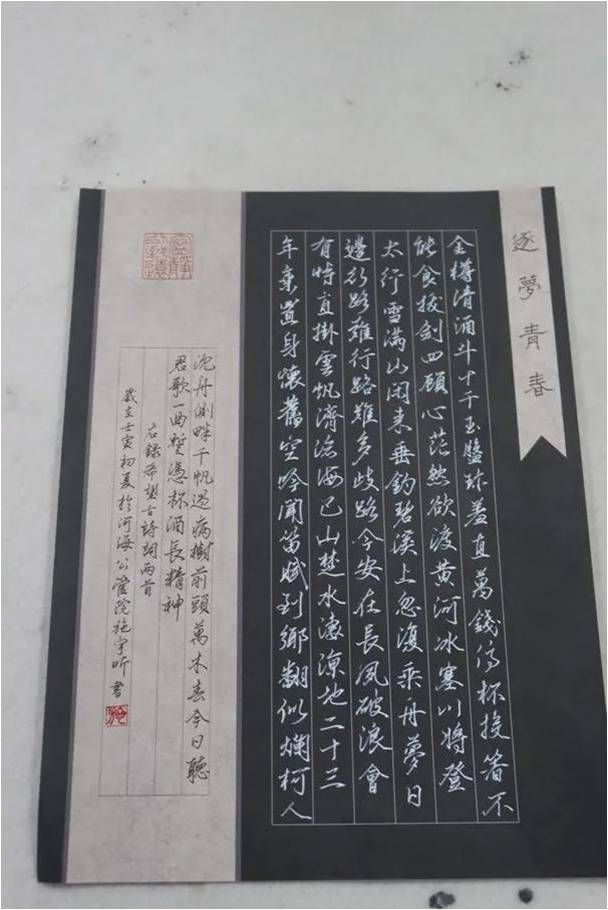 逐夢青春
金樽清酒斗十千玉盤珎羞直萬錢停杯投箸不
能食拔劍四顧心茫然欲渡黃河冰塞川將登
太行雪滿山閑來垂釣碧溪上忽復乘舟夢日
邊行路難行路難多歧路今安在長風破浪會
有時直掛雲帆濟滄海巴山楚水淒涼地二十三
年棄置身懷舊空吟聞笛賦到鄉翻似爛柯人
沈舟側畔千帆過病樹前頭萬木春今日聽
君歌一曲暫憑杯酒長精神
右錄希望古詩詞兩首
歲在壬寅初夏於河海公管院施宇昕書
寧靜致遠
施